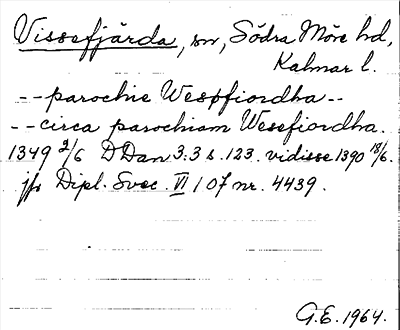 Vissefjärda, sn, Södra Möre hd,
Kalmar l.
--parochie Wespfiordha--
--circa parochiam Wesefiordha.
1349 2/6 DDan 3:3 s. 123. vidisse 1390 18/6.
jfr Dipl. Svec. VI 107 nr. 4439.
G.E. 1964.